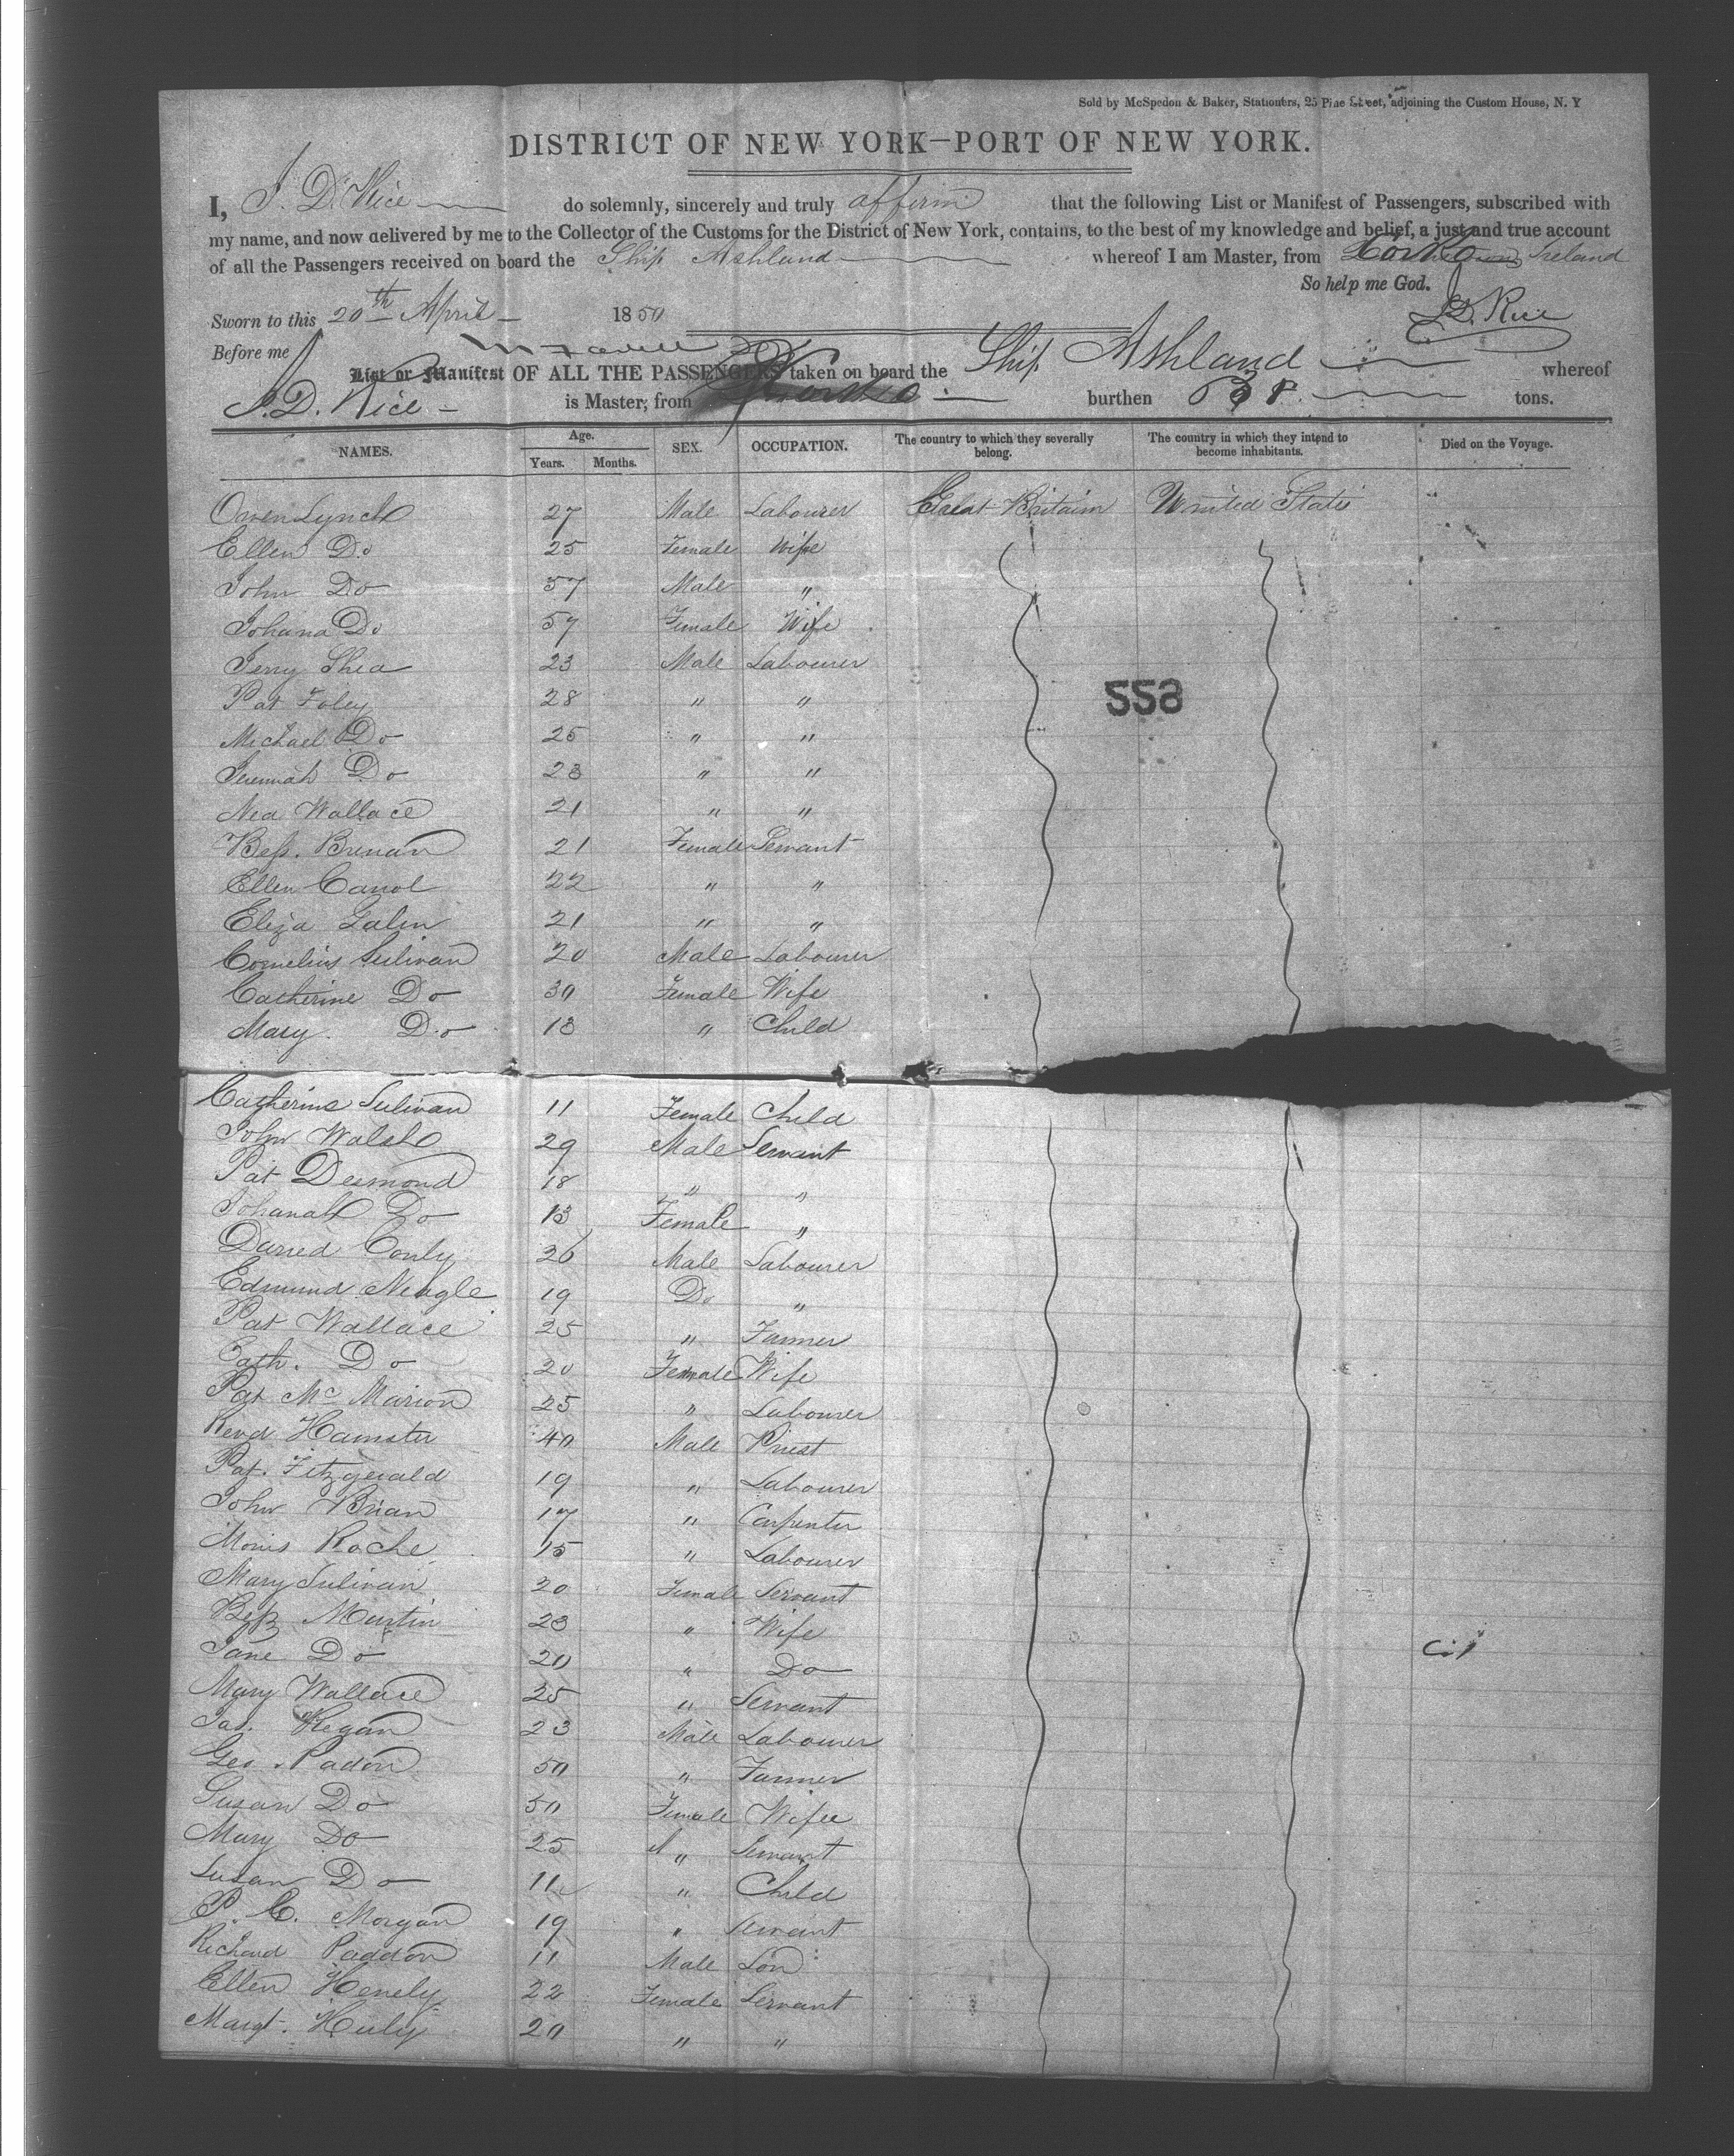 Sold by McSpedon & Baker, Stationers, 25 Pine Street, adjoining the Custom House, N. Y
DISTRICT OF NEW YORK—PORT OF NEW YORK.
I, J. D. Rice do solemnly, sincerely and truly affirm that the following List or Manifest of Passengers, subscribed with
my name, and now delivered by me to the Collector of the Customs for the District of New York, contains, to the best of my knowledge and belief, a just and true account
of all the Passengers received on board the Ship Ashland whereof I am Master, from Ireland
So help me God.
Sworn to this 20th April 1850 J. D. Rice
Before me
List or Manifest OF ALL THE PASSENGERS taken on board the Ship Ashland whereof
J. D. Rice is Master, from burthen tons.
NAMES. Age. Years. Months. SEX. OCCUPATION. The country to which they severally belong. The country in which they intend to become inhabitants. Died on the Voyage.
Owen Lynch 27 Male Labourer Great Britain United States
Ellen Do 25 Female Wife
John Do 57 Male "
Johana Do 57 Female Wife
Jerry Shea 23 Male Labourer
Pat Foley 28 " "
558
Michael Do 25 " "
Jeremiah Do 23 " "
Ned Wallace 21 " "
Bess. Brenan 21 Female Servant
Ellen Carrol 22 " "
Eliza 21 " "
Cornelius Sulivan 20 Male Labourer
Catherine Do 30 Female Wife
Mary. Do 13 " Child
Catherine Sulivan 11 Female Child
John Walsh 29 Male Servant
Pat Desmond 18 " "
Johanah Do 13 Female "
Conly 26 Male Labourer
Edmund Neagle 19 Do "
Pat Wallace 25 " Farmer
Cath. Do 20 Female Wife
Pat Mc Marion 25 " Labourer
Revd Hamster 40 Male Priest
Pat. Fitzgerald 19 " Labourer
John Brian 17 " Carpenter
Morris Roche 15 " Labourer
Mary Sulivan 20 Female Servant
Bess Martin 23 " Wife
Jane Do 20 " Do
Mary Wallace 25 " Servant
Jas. Regan 23 Male Labourer
Geo. Padon 50 " Farmer
Susan Do 50 Female Wife
Mary Do 25 " Servant
Susan Do 11 " Child
P. C. Morgan 19 " Servant
Richard Paddon 11 Male Son
Ellen Henely 22 Female Servant
Margt. Huly 20 " "